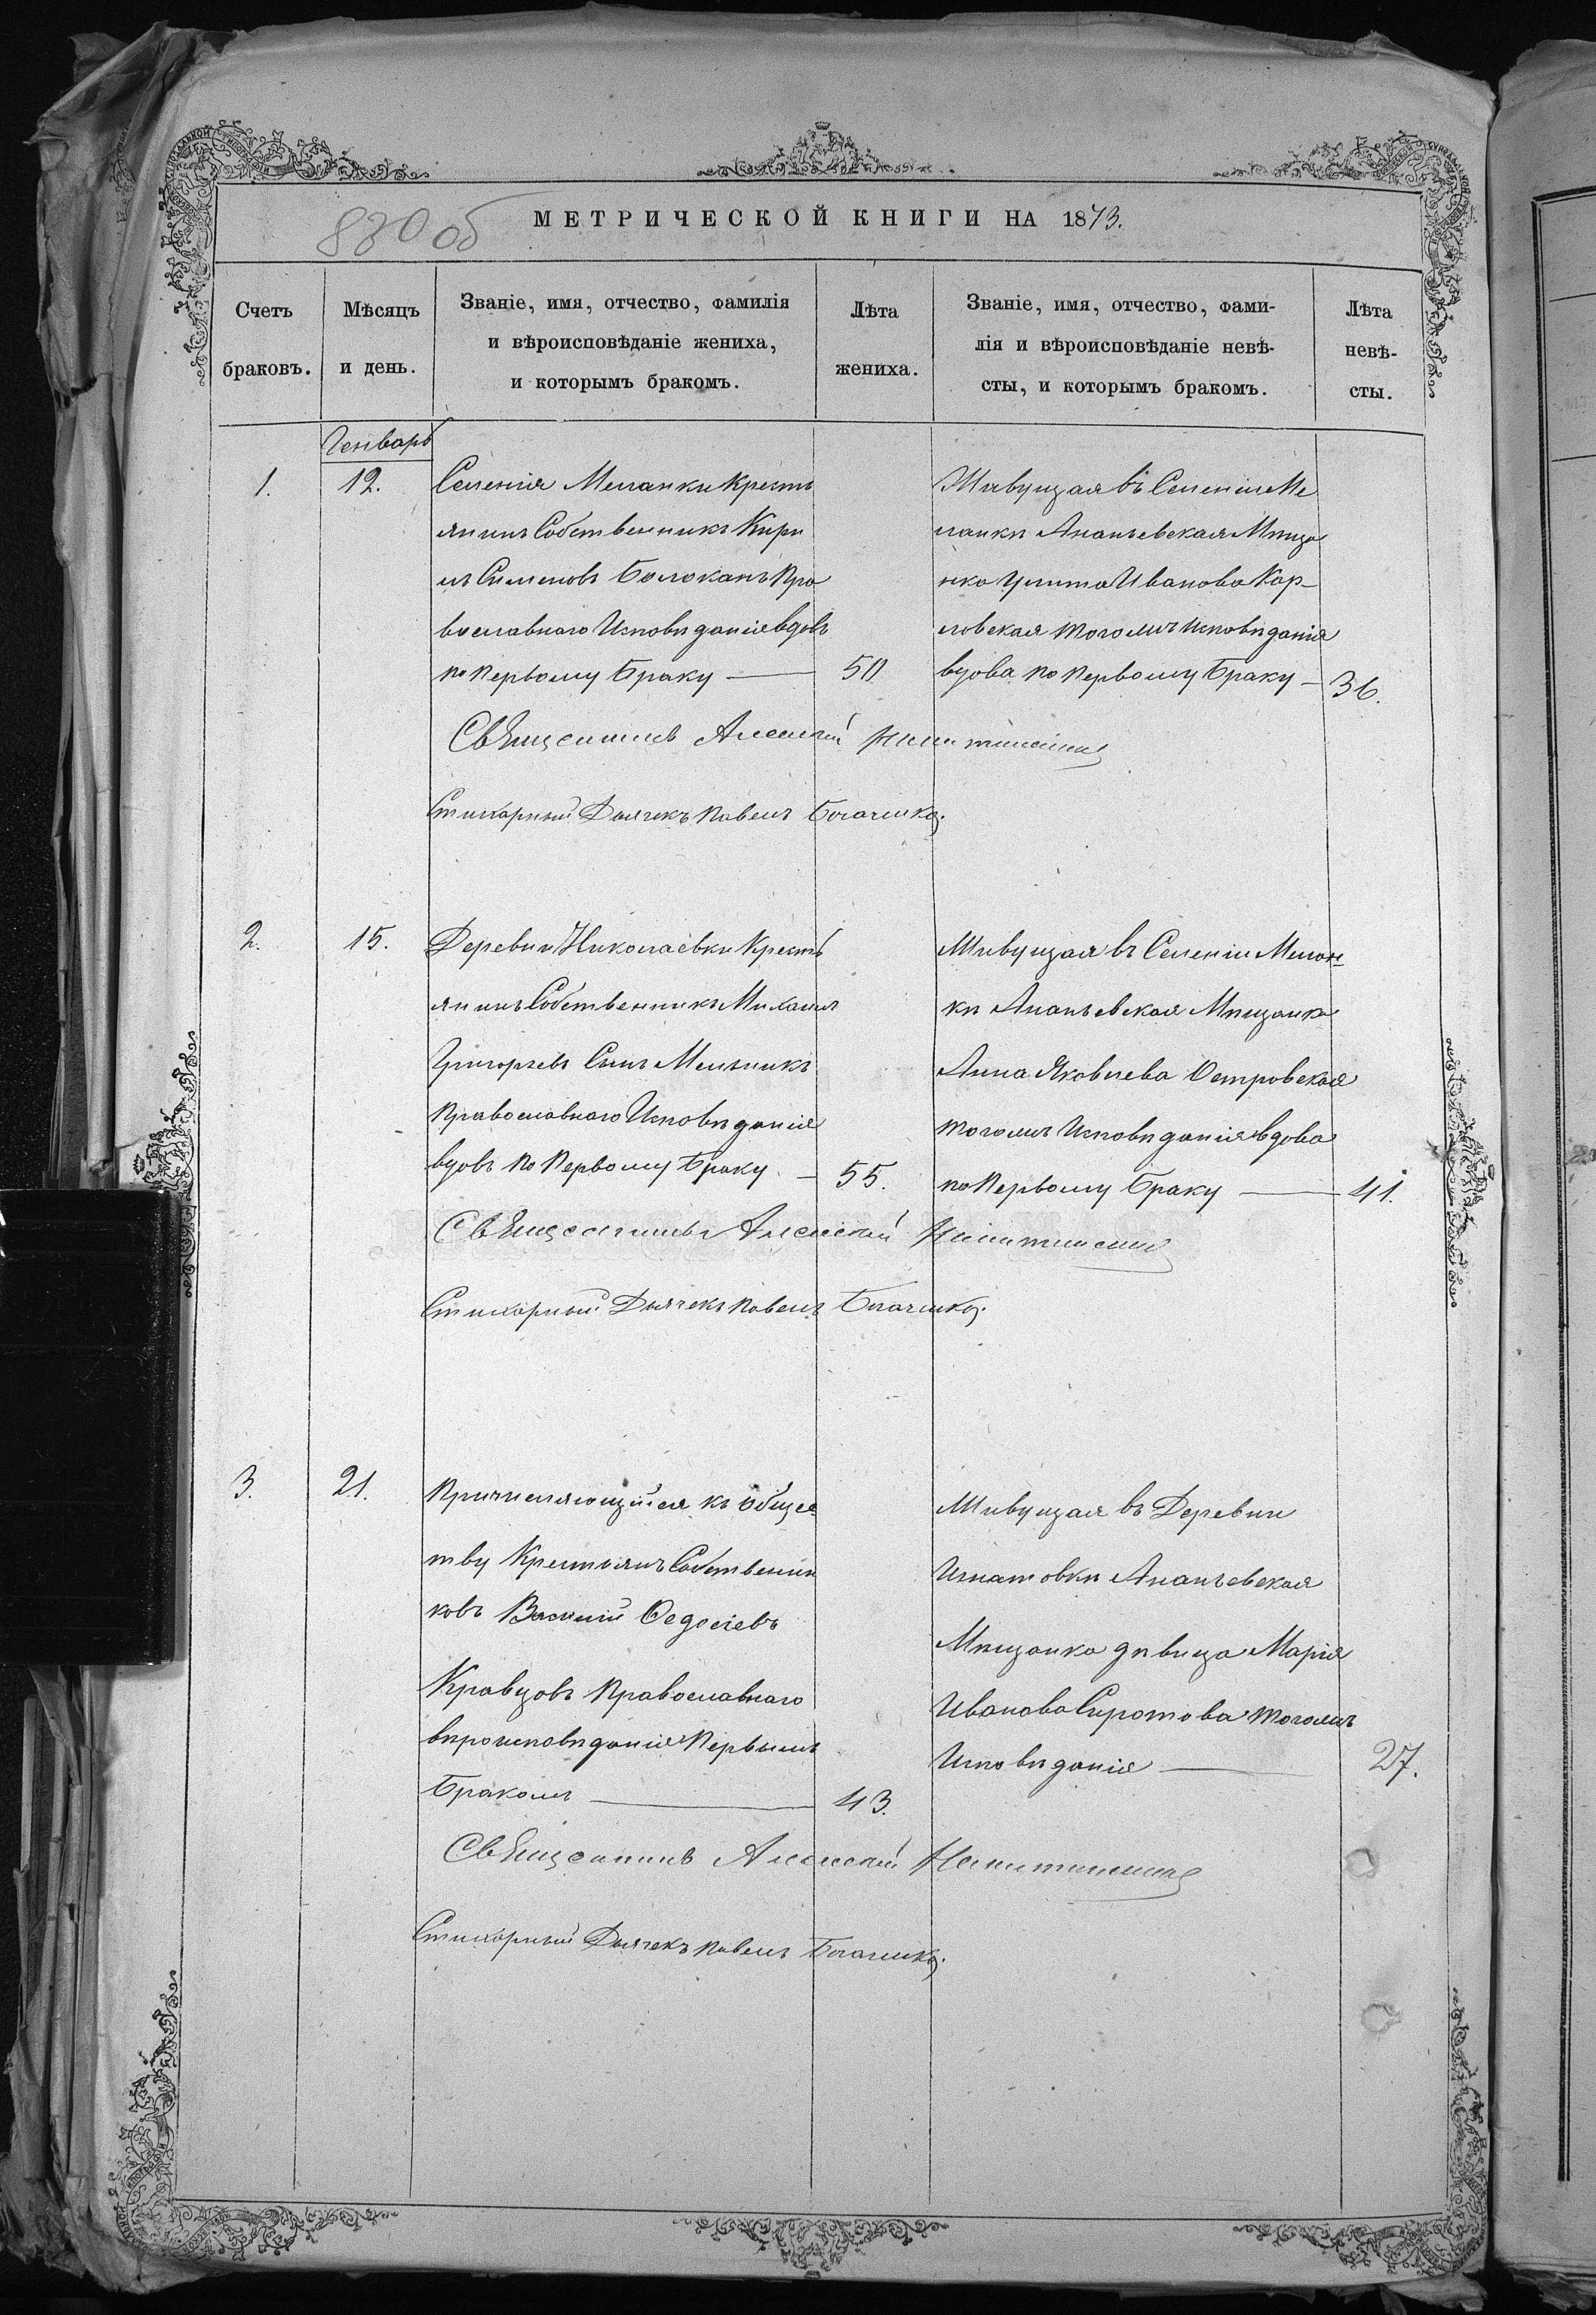 830 об
МЕТРИЧЕСКОЙ КНИГИ НА 1873.
Счетъ браковъ.
Мѣсяцъ и день.
Званіе, имя, отчество, фамилія
и вѣроисповѣданіе жениха,
и которымъ бракомъ.
Лѣта жениха.
Званіе, имя, отчество, фами-
лія и вѣроисповѣданіе невѣ-
сты, и которымъ бракомъ.
Лѣта невѣ-
сты.
Генварь
1.
12.
Селенія Меланки Кресть
янинъ Собственникъ Кири
лъ Сименовъ Болоканъ Пра
вославнаго Исповѣданія вдовъ
по Первому Браку — 50
Живущая въ Селеніи Ме
ланки Ананьевская Мѣща
нка Улита Иванова Кар-
ловская тогожъ Исповѣданія
вдова по Первому Браку — 36.
Священникъ Алексѣй
Стихарный Дьячекъ Павелъ
2.
15.
Деревни Николаевки Кресть
янинъ Собственникъ Михаилъ
Григорьевъ Сынъ Мельникъ
Православнаго Исповѣданія
вдовъ по Первому Браку — 55.
Живущая въ Селеніи Мелан-
ки Ананьевская Мѣщанка
Анна Яковлева Островская
тогожъ Исповѣданія вдова
по Первому Браку — 41.
Священникъ Алексѣй
Стихарный Дьячекъ Павелъ
3.
21.
Причисляющійся къ Общес
тву Крестьянъ Собственни
ковъ Василій Федосіевъ
Кравцовъ Православнаго
вѣроисповѣданія Первымъ
Бракомъ — 43.
Живущая въ Деревни
Игнатовки Ананьевская
Мѣщанка дѣвица Марія
Иванова Сиротова тогожъ
Исповѣданія — 27.
Священникъ Алексѣй
Стихарный Дьячекъ Павелъ